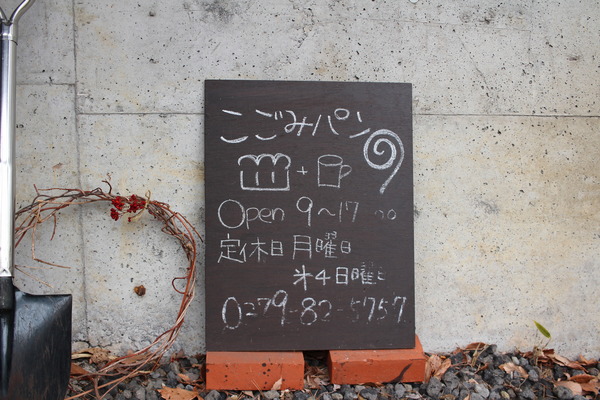 こごみパン
Open 9~17:00
定休日 月曜日
※4日曜日
0279-82-5757